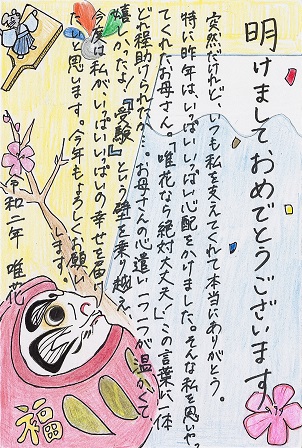 明けまして、おめでとうございます
突然だけれど、いつも私を支えてくれて本当にありがとう。
特に昨年は、いっぱいいっぱい心配をかけました。そんな私を思いや
てくれたお母さん。「唯花なら絶対大丈夫！」この言葉に一体
どれ程助けられたか…。お母さんの心遣い一つ一つが温かくて、
嬉しかったよ！『受験』という壁を乗り越え、
今度は私がいっぱいいっぱいの幸せを
たいと思います。今年もよろしくお願い
します。
令和二年 唯花
福